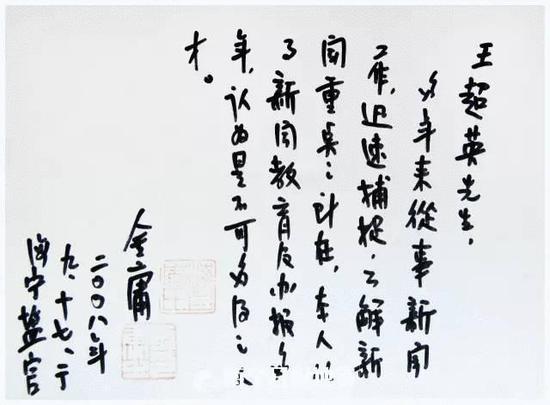 王超英先生,
多年来從事新闻
工作,迅速捕捉、了解新
闻重点之所在,本人从
事新闻教育及办报多
年,认为是不可多得之人
才。
金庸
二〇〇八年
九、十七、于
海宁盐官